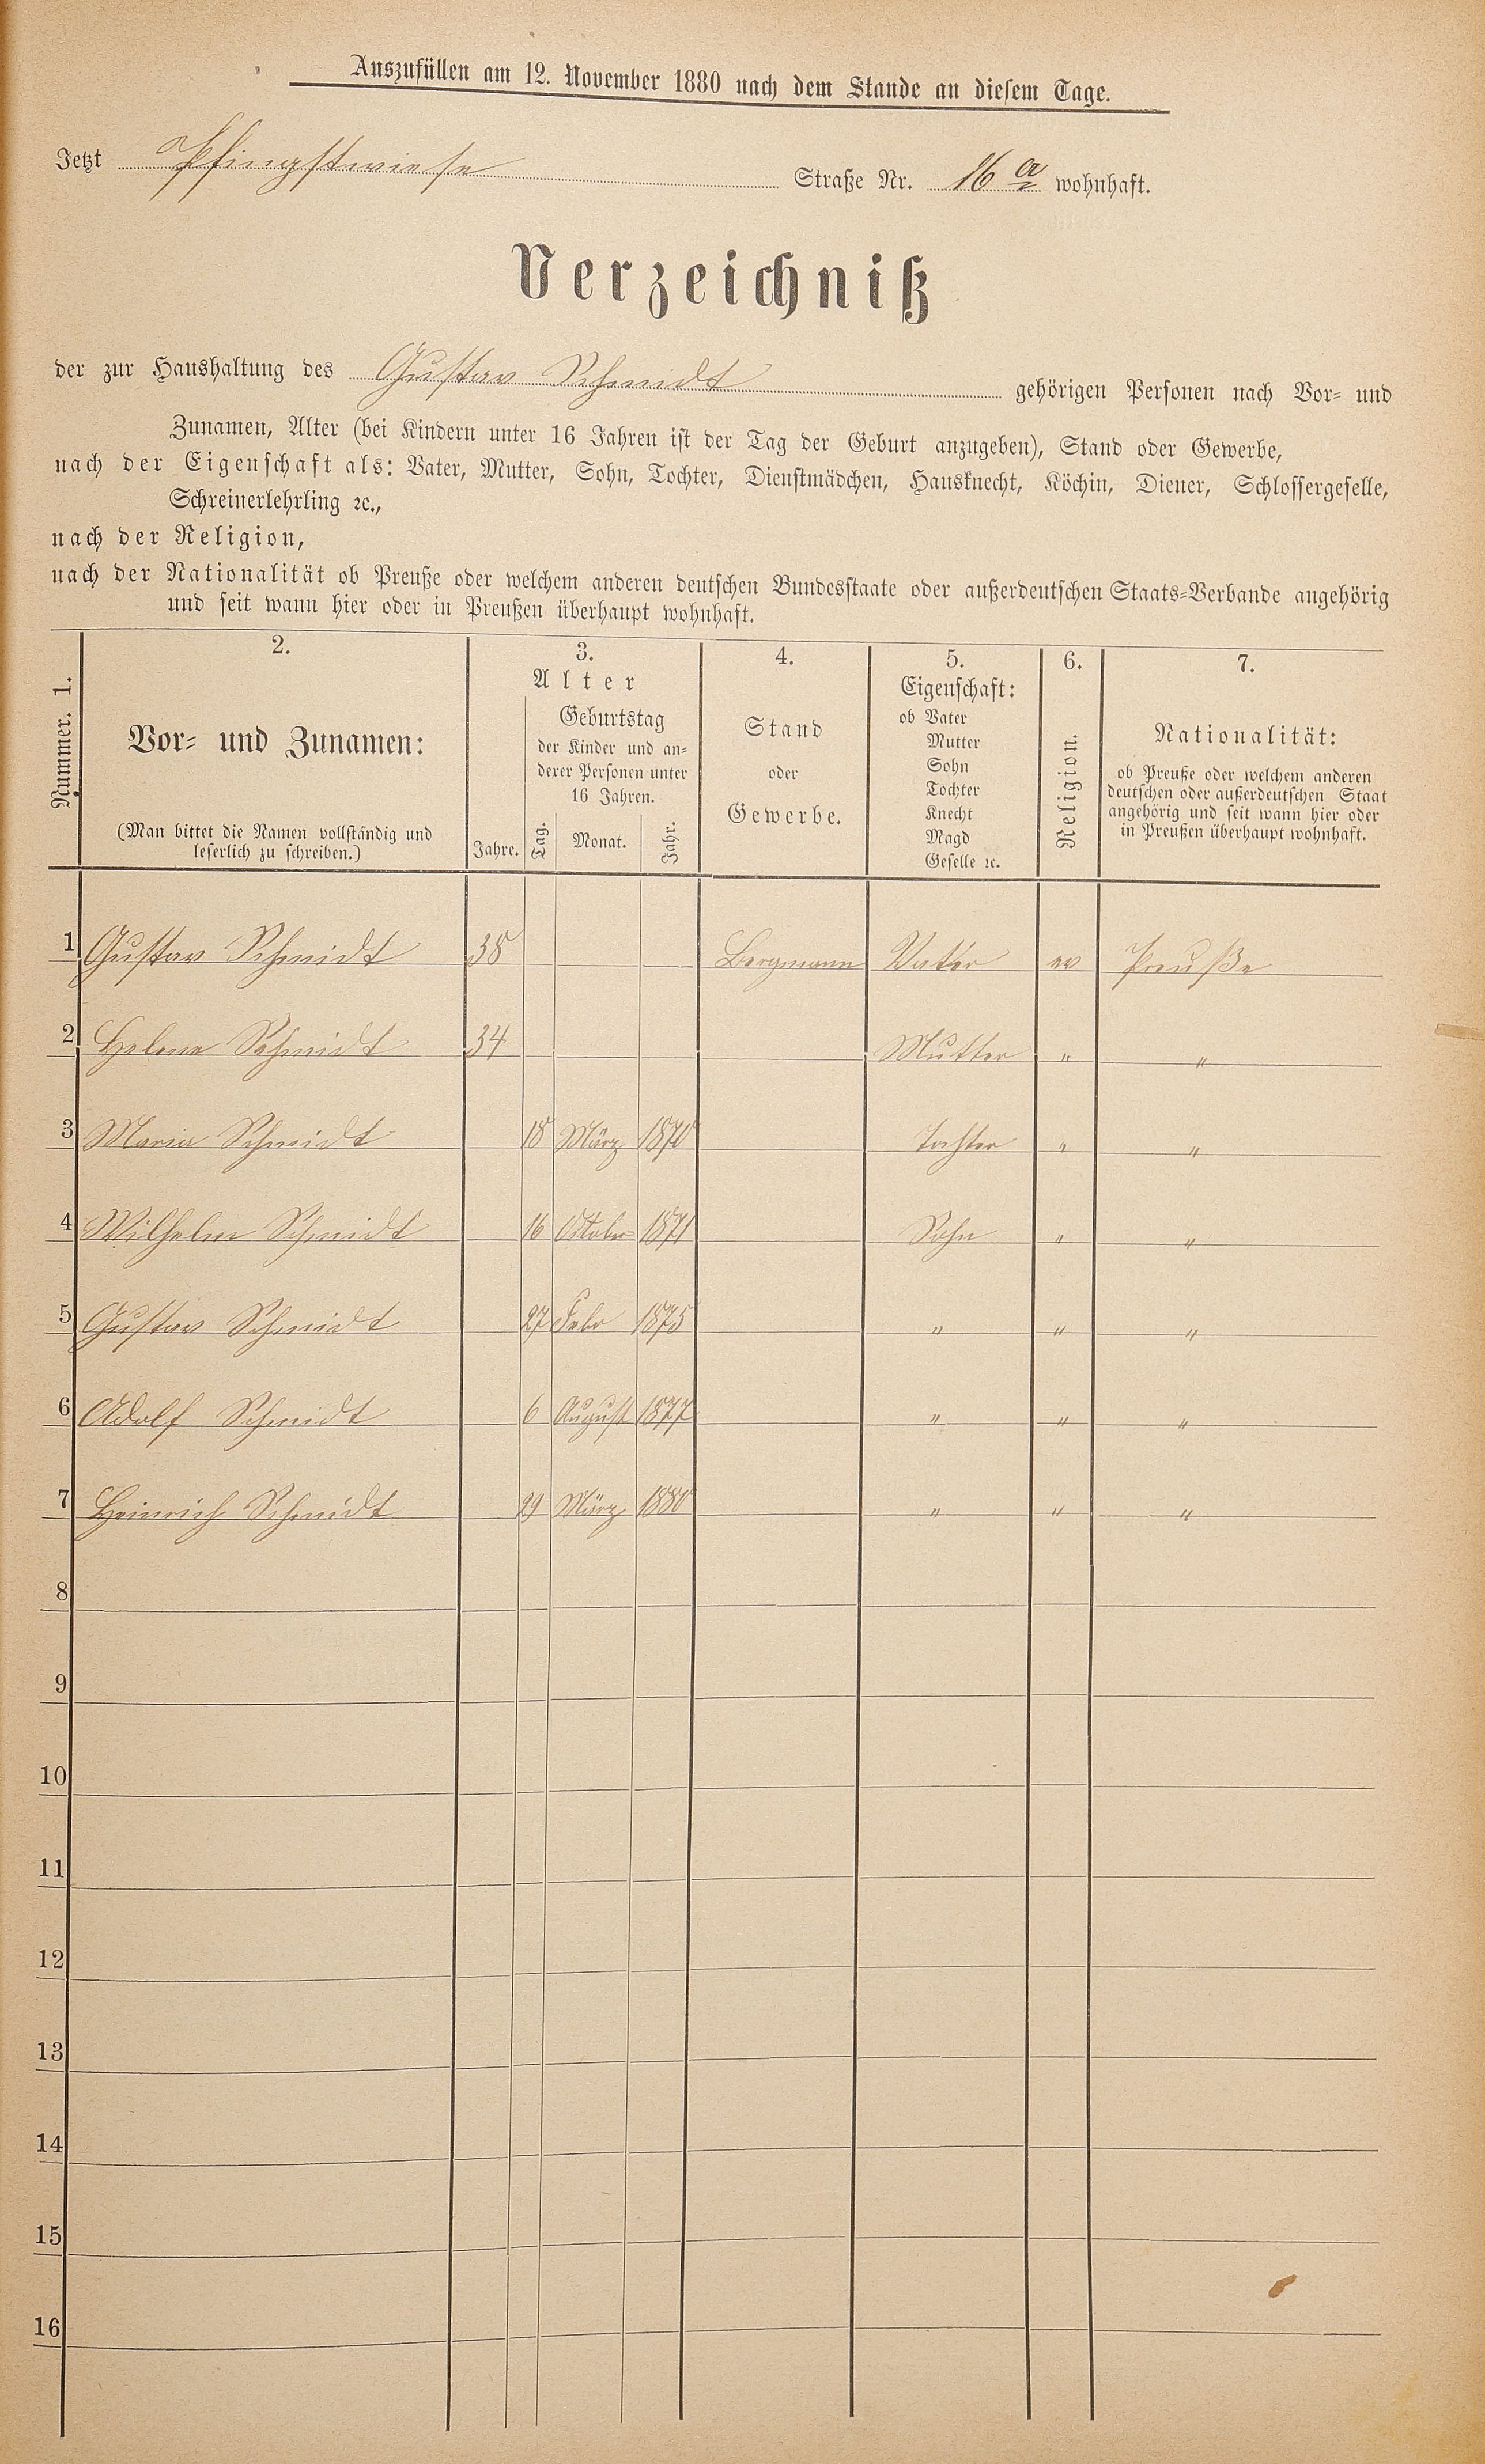 Auszufüllen am 12. November 1880 nach dem Stande an diesem Tage.
Jetzt Pfingstwiese Straße Nr. 16 a wohnhaft.
Verzeichniß
der zur Haushaltung des Gustav Schmidt gehörigen Personen nach Vor- und
Zunamen, Alter (bei Kindern unter 16 Jahren ist der Tag der Geburt anzugeben), Stand oder Gewerbe,
nach der Eigenschaft als: Vater, Mutter, Sohn, Tochter, Dienstmädchen, Hausknecht, Köchin, Diener, Schlossergeselle,
Schreinerlehrling ꝛc.,
nach der Religion,
nach der Nationalität ob Preuße oder welchem anderen deutschen Bundesstaate oder außerdeutschen Staats-Verbande angehörig
und seit wann hier oder in Preußen überhaupt wohnhaft.
Nummer. 1.
2.
Vor- und Zunamen:
(Man bittet die Namen vollständig und
leserlich zu schreiben.)
3.
Alter
Jahre.
Geburtstag
der Kinder und an-
derer Personen unter
16 Jahren.
Tag. Monat. Jahr.
4.
Stand
oder
Gewerbe.
5.
Eigenschaft:
ob Vater
Mutter
Sohn
Tochter
Knecht
Magd
Geselle ꝛc.
6.
Religion.
7.
Nationalität:
ob Preuße oder welchem anderen
deutschen oder außerdeutschen Staat
angehörig und seit wann hier oder
in Preußen überhaupt wohnhaft.
1 Gustav Schmidt 38 Bergmann Vater ev Preuße
2 Helene Schmidt 34 Mutter " "
3 Maria Schmidt 18 März 1870 Tochter " "
4 Wilhelm Schmidt 16 October 1871 Sohn " "
5 Gustav Schmidt 27 Febr 1875 " " "
6 Adolf Schmidt 6 August 1877 " " "
7 Heinrich Schmidt 29 März 1880 " " "
8
9
10
11
12
13
14
15
16